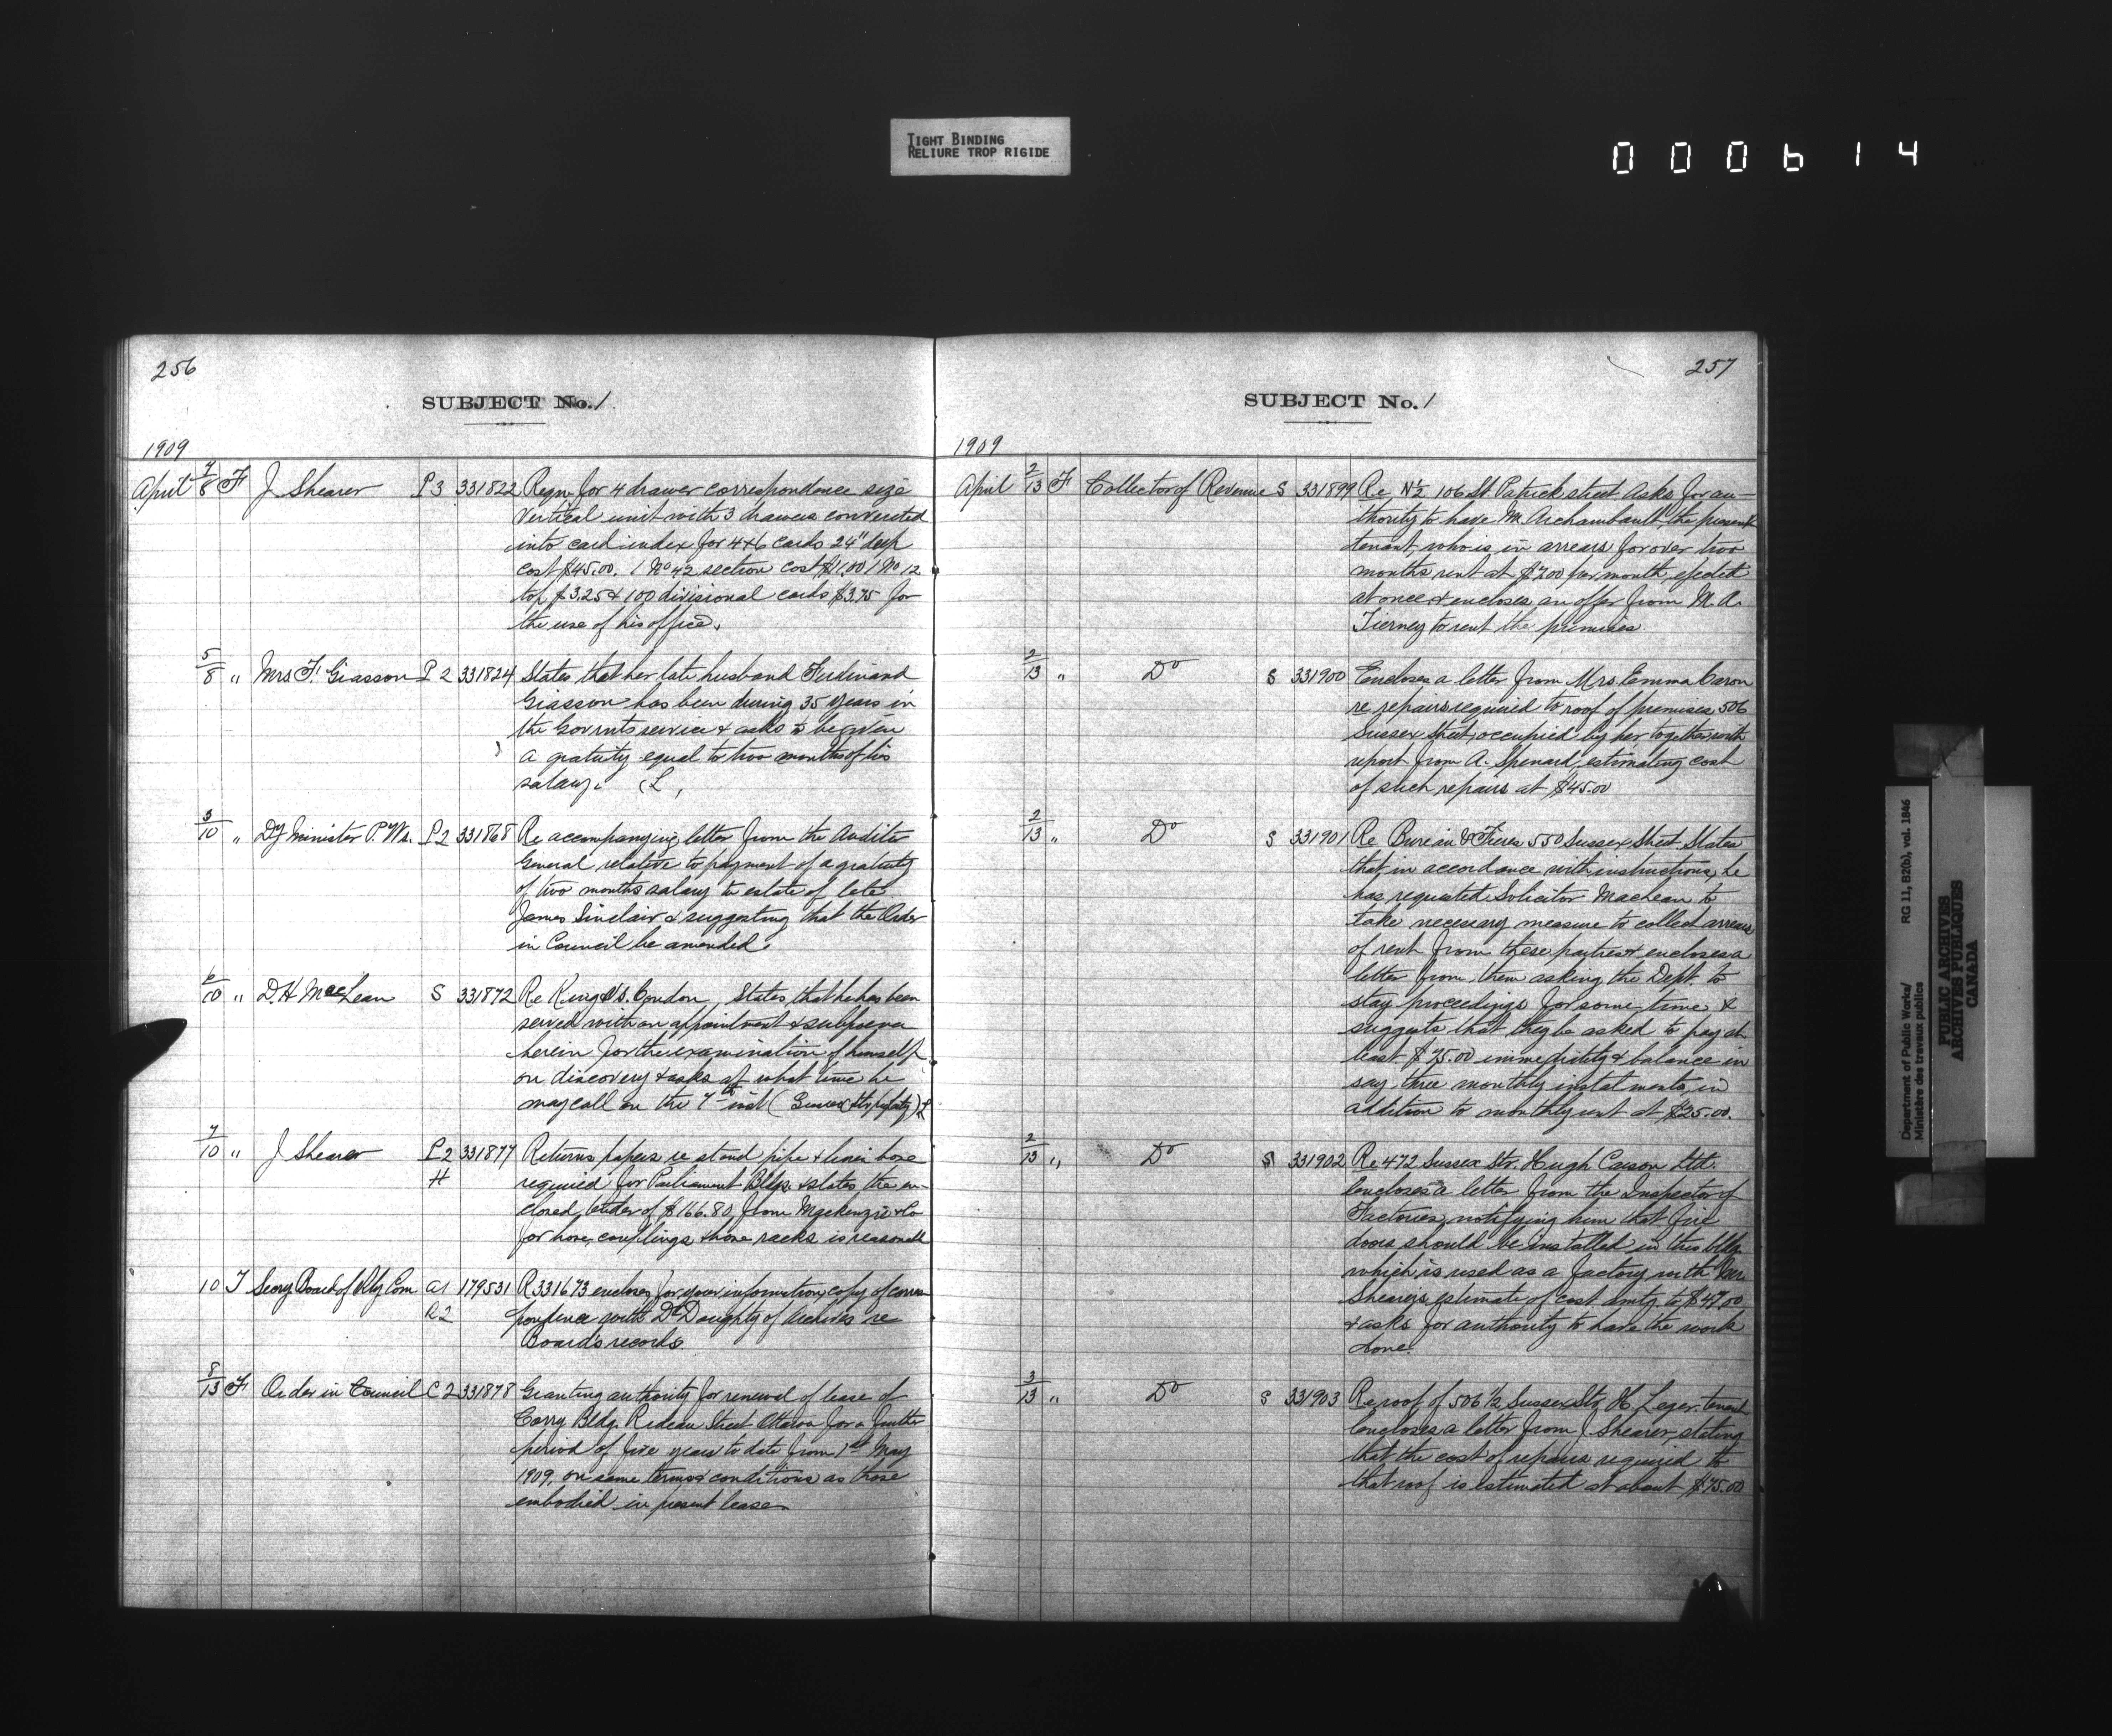 TIGHT BINDING
RELIURE TROP RIGIDE
000614
256
SUBJECT No. 1
1909
April 7/8 F J Shearer P3 331822 Reqn for 4 drawer correspondence size
vertical unit with 3 drawers converted
into card index for 4x6 cards 24" deep
cost $45.00. 1 No 42 section cost $1.00 1 No 12
top $3.25 & 100 divisional cards $3.75 for
the use of his office.
5/8 " Mrs F. Giasson P2 331824 States that her late husband Ferdinand
Giasson has been during 35 years in
the Govrnts service & asks to be given
a gratuity equal to two months of his
salary. L
3/10 " Dy Minister P. Ws. P2 331868 Re accompanying letter from the Auditor
General relative to payment of a gratuity
of two months salary to estate of late
James Sinclair & suggesting that the Order
in Council be amended.
6/10 " D. H MacLean S 331872 Re King Vs. Condon, States that he has been
served with an appointment & subpoena
herein for the examination of himself
on discovery & asks at what time he
may call on the 7th inst (Sussex Str property) L
7/10 " J Shearer P2 331877 Returns papers re stand pipe & linen hose
H required for Parliament Bldgs & states the en-
closed tender of $166.80 from Mackenzie & Co
for hose, couplings & hose racks is reasonable
10 T Secry Board of Rly Com A1 179531 R331673 encloses for your information copy of corres
R2 pondence with Dr Doughty of Archives re
Board's records.
8/13 F Order in Council C2 331878 Granting authority for renewal of lease of
Corry Bldg. Rideau Street Ottawa for a further
period of five years to date from 1st May
1909, on same terms & conditions as those
embodied in present lease
257
SUBJECT No. 1
1909
April 2/13 F Collector of Revenue S 331899 Re N½ 106 St. Patrick street Asks for au-
thority to have M. Archambault, the present
tenant, who is in arrears for over two
months rent at $7.00 per month, ejected
at once & encloses an offer from M. A.
Tierney to rent the premises.
2/13 " Do S 331900 Encloses a letter from Mrs Emma Caron
re repairs required to roof of premises 506
Sussex Street, occupied by her together with
report from A. Spenard, estimating cost
of such repairs at $45.00
2/13 " Do S 331901 Re Bureau & Freres 550 Sussex Street States
that in accordance with instructions, he
has requested Solicitor MacLean to
take necessary measure to collect arrears
of rent from these parties & encloses a
letter from them asking the Dept. to
stay proceedings for some time &
suggests that they be asked to pay at
least $75.00 immediately & balance in
say, three monthly instalments, in
addition to monthly rent at $25.00.
2/13 " Do S 331902 Re 472 Sussex Str. Hugh Carson Ltd.
Encloses a letter from the Inspector of
Factories notifying him that fire
doors should be installed in this bldg
which is used as a factory with Mr.
Shearers estimate of cost amtg to $47.00
& asks for authority to have the work
done.
3/13 " Do S 331903 Re roof of 506 1/2 Sussex Str H Leger tenant
Encloses a letter from J Shearer, stating
that the cost of repairs required to
that roof is estimated at about $75.00
Department of Public Works/ RG 11, B2(b), vol. 1846
Ministère des travaux publics
PUBLIC ARCHIVES
ARCHIVES PUBLIQUES
CANADA